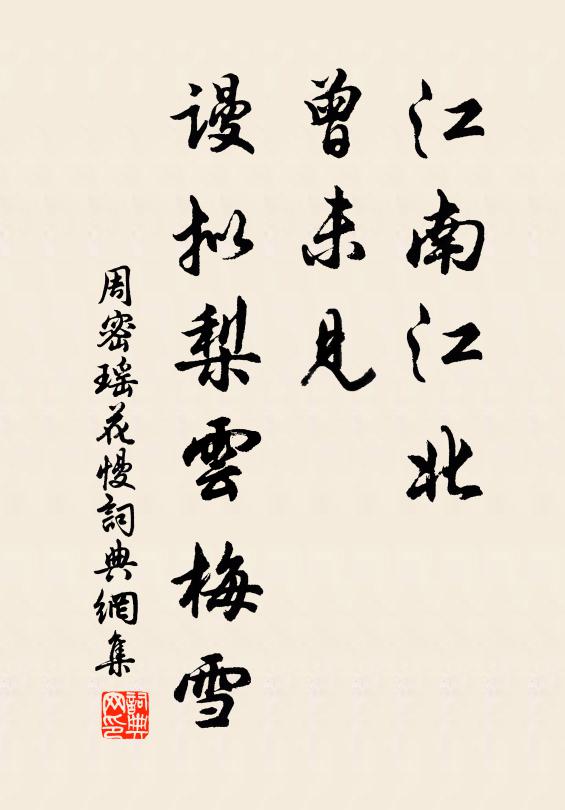 江南江北
曾未見
謾拟梨雲梅雪
周密瑶花慢詞典網集
詞典网印